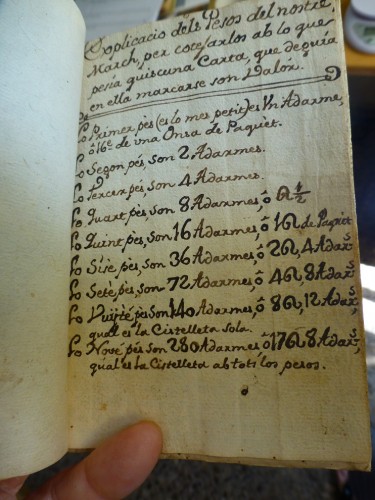 Explicacio dels Pesos del nostre
March, per cotejarlos ab lo que
pesia quiscuna Carta, que deguia
en ella marcarse son Valór.
Lo Primer pès (es lo mes petit) es 1/2 Adarme,
ô 16.e de una Onsa de Paquet.
Lo Segon pès, son 2 Adarmes.
Lo Tercer pès, son 4 Adarmes.
Lo Quart pès, son 8 Adarmes, ô 1/2
Lo Quint pès, son 16 Adarmes, ô 1 de Paquet
Lo Sisè pès, son 36 Adarmes, ô 2 , 4 Adars
Lo Setè pès, son 72 Adarmes, ô 4 , 8 Adars
Lo Vuitè pès, son 140 Adarmes, ô 8 , 12 Adars,
qual es la Cistelleta sola.
Lo Nové pès son 280 Adarmes ô 17 8 Adars,
qual es la Cistelleta ab tots los pesos.